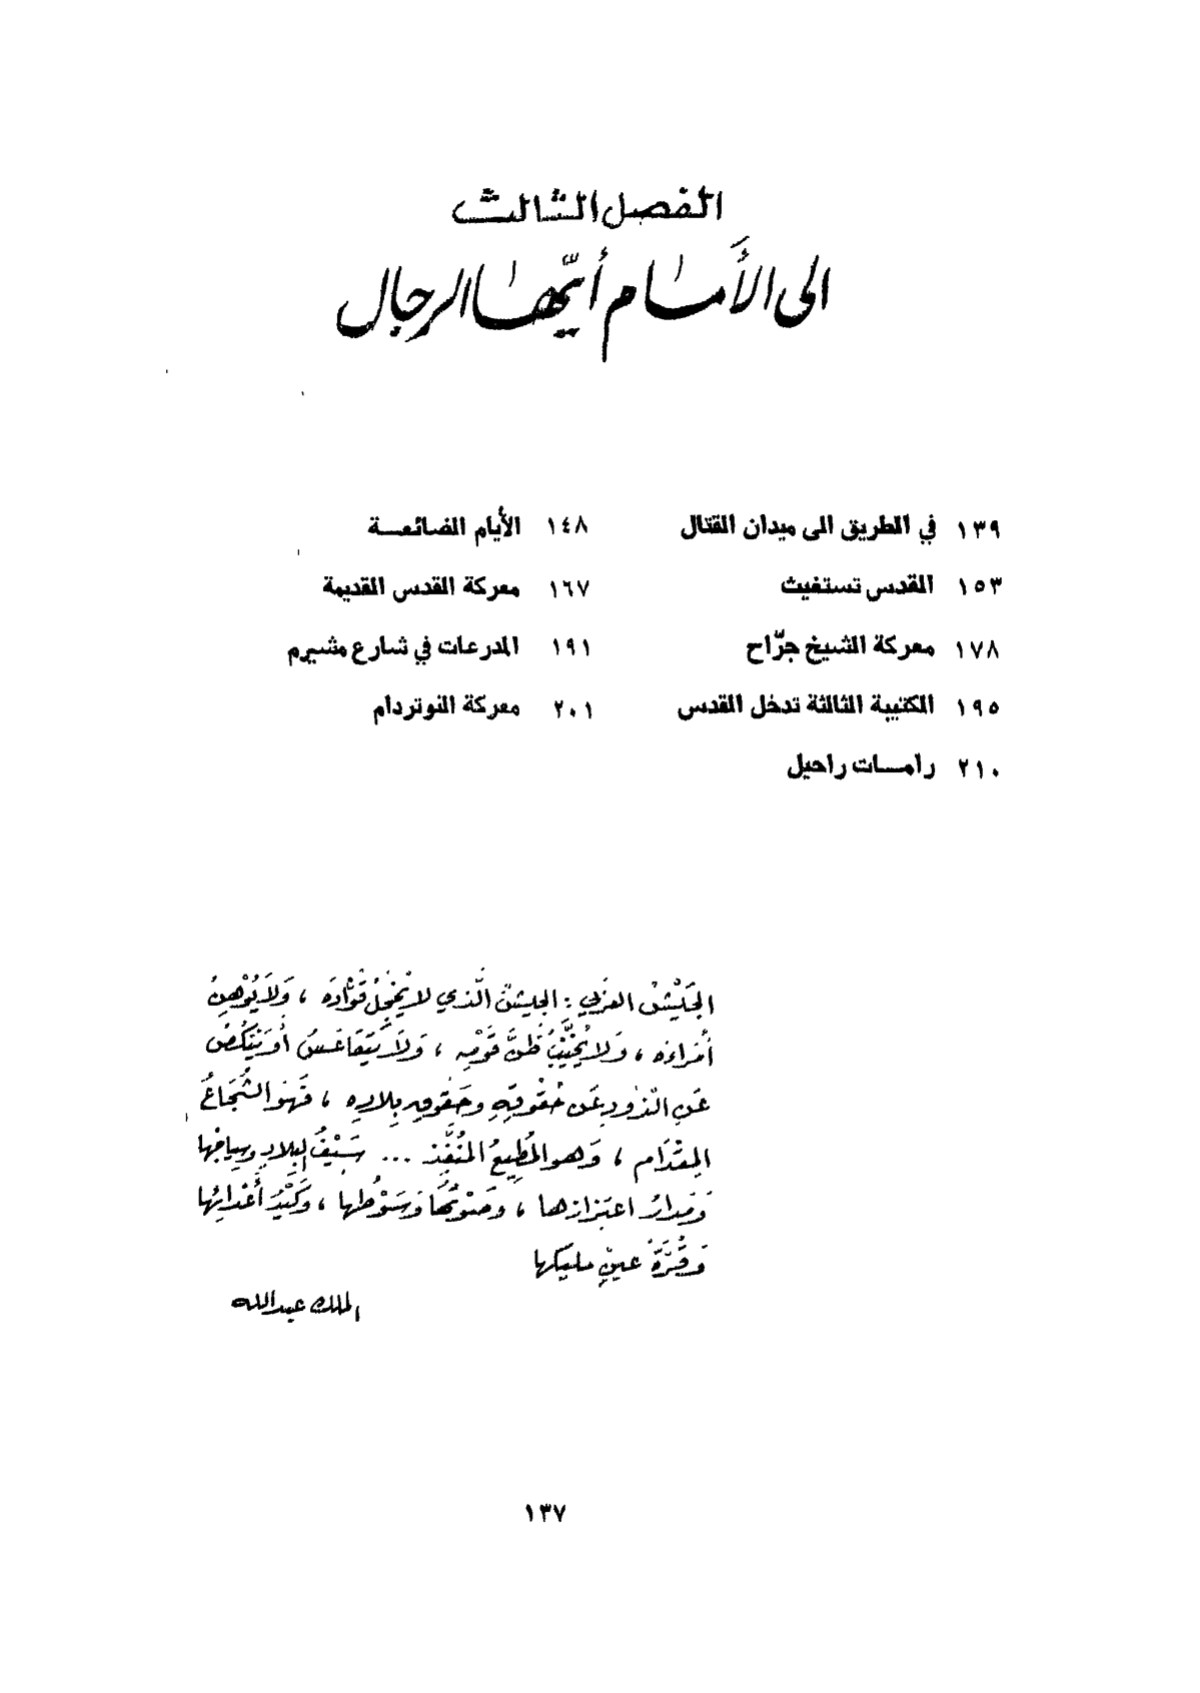 الفصل الثالث
الى الأَمام أيّها الرجال
١٣٩ في الطريق الى ميدان القتال ١٤٨ الأيام الضائعة
١٥٣ القدس تستغيث ١٦٧ معركة القدس القديمة
١٧٨ معركة الشيخ جرّاح ١٩١ المدرعات في شارع مشيرم
١٩٥ الكتيبة الثالثة تدخل القدس ٢٠١ معركة النوتردام
٢١٠ رامات راحيل
الجَيْشُ العربي : الجيشُ الّذي لا يُخْجِلُ قُوّادَه ، وَلاَ يُوْهِنُ
أُمَراءَه ، وَلا يُخَيِّبُ ظَنَّ قَوْمِهِ ، وَلاَ يَتَقَاعَسُ أو يَنْكُصُ
عَنِ الذَّودِ عَن حُقُوقِهِ وحَقوقِ بِلادِهِ ، فَهْوَ الشُّجَاعُ
المِقْدَام ، وَهو المُطِيعُ المُنَفِّذ ... سَيْفُ البِلادِ وسِياجُها
وَمَدارُ اعتِزازِها ، وصَوْتُهَا وَسَوْطُها ، وَكَيْدُ أَعْدائِها
وَقُرَّةُ عينِ مليكِها
الملك عبدالله
١٣٧